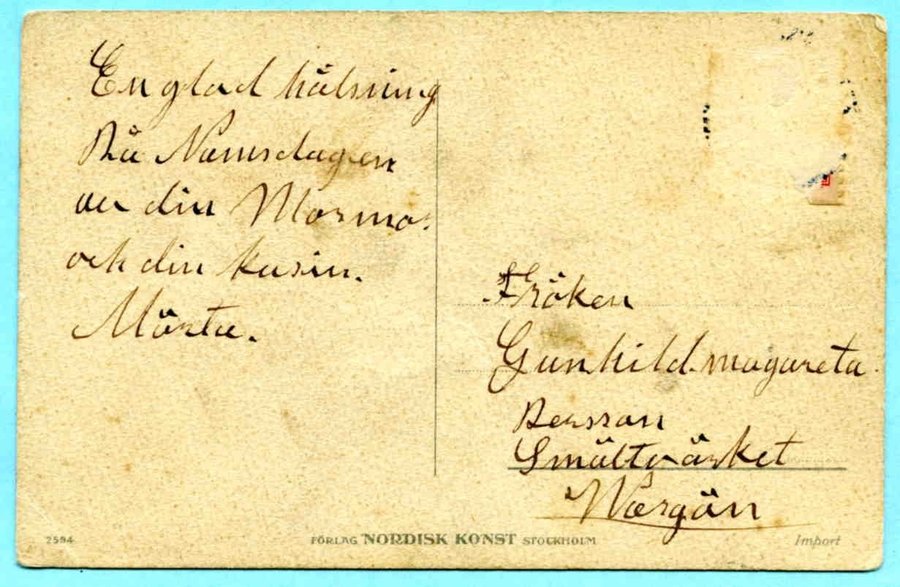 En glad hälsning
På Namsdagen
av din Mormo.
och din kusin.
Märta.
Fröken
Gunhild. magareta
Persson
Smältvärket
Wargön
2594
FÖRLAG NORDISK KONST STOCKHOLM
Import